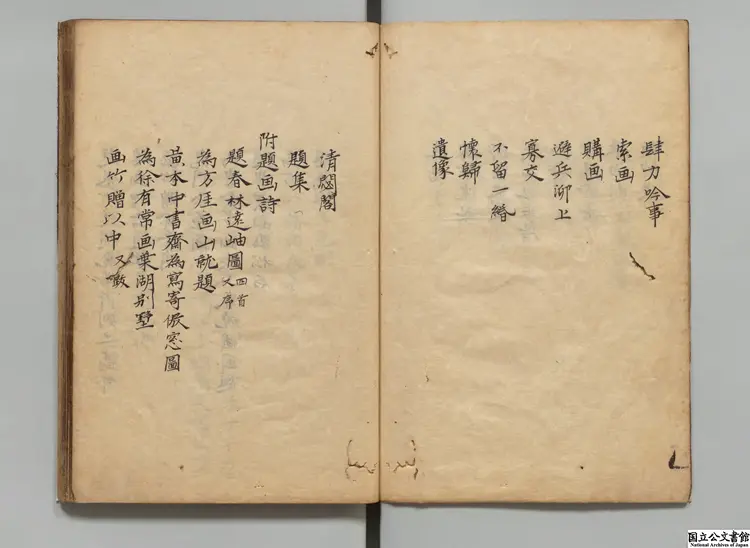 肆力吟事
索画
購画
避兵泖上
寡交
不留一緡
懐歸
遺像
清閟閣
題集
附題画詩
題春林遠岫圖 四首 又序
為方厓画山就題
黄本中書齋為寫寄傲窓圖
為徐有常画葉湖別墅
画竹贈以中又戯
国立公文書館
National Archives of Japan